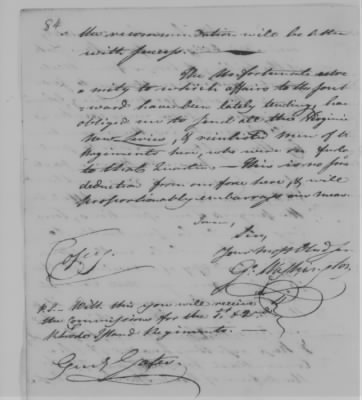 54
the recommendation will be attended
with success.
The Unfortunate extre
mity to which affairs to the South
ward have been lately tending, has
obliged me to send all the Virginia
New Levies, & reinlisted men of
Regiments here, who were on furlo
to that Quarter. — This is no small
deduction from our force here, & will
proportionably embarrass our mea
I am,
Sir,
Your most Obed.
G. Washington
Copy.
P.S. — With this you will receive
the Commissions for the 1. & 2nd
Rhode Island Regiments. —
Genl. Gates.